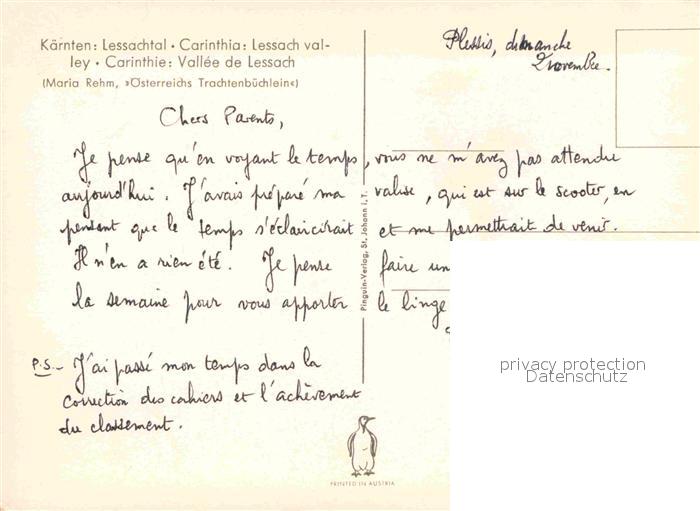 Kärnten: Lessachtal • Carinthia: Lessach val-
ley • Carinthie: Vallée de Lessach
(Maria Rehm, »Österreichs Trachtenbüchlein«)
Plessis, dimanche
2 novembre.
Chers Parents,
Je pense qu'en voyant le temps, vous ne m'avez pas attendu
aujourd'hui. J'avais préparé ma valise, qui est sur le scooter, en
pensant que le temps s'éclaircirait et me permettrait de venir.
Il n'en a rien été. Je pense faire un
la semaine pour vous apporter le linge
P.S.- J'ai passé mon temps dans la
correction des cahiers et l'achèvement
du classement.
Pinguin-Verlag, St. Johann i. T.
PRINTED IN AUSTRIA
privacy protection
Datenschutz